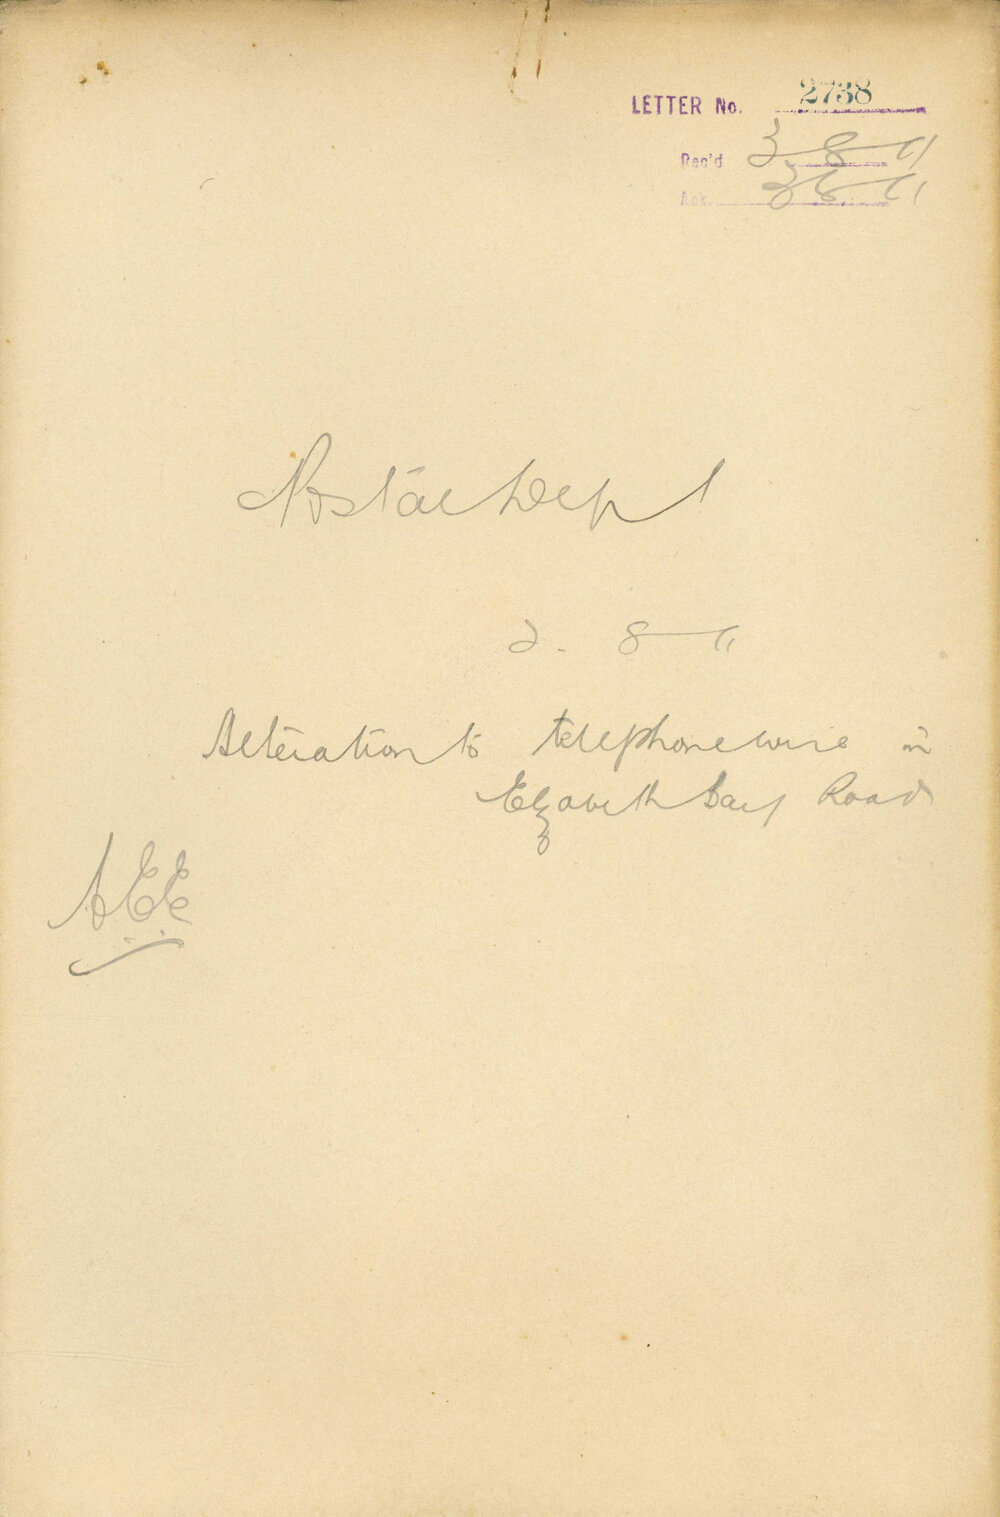 LETTER No. 2738
Rec'd 3-8-11
Ack. 3-8-11
Postal Dept
2-8-11
Alteration to telephone wire in
Elizabeth Bay Road
AEE